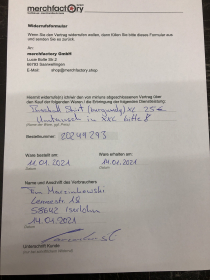 merchfactory
Widerrufsformular
Wenn Sie den Vertrag widerrufen wollen, dann füllen Sie bitte dieses Formular aus
und senden Sie es zurück.
An:
merchfactory GmbH
E-Mail: shop@merchfactory.shop
Hiermit widerrufe(n) ich/wir den von mir/uns abgeschlossenen Vertrag über
den Kauf der folgenden Waren / die Erbringung der folgenden Dienstleistung:
(burgundy) XL 25€
Umtausch in XXL bitte
Bestellnummer: 20249293
Ware bestellt am: Ware erhalten am:
11.01.2021 14.01.2021
Datum Datum
Name und Anschrift des Verbrauchers
58642 Iserlohn
14.01.2021
Datum
Unterschrift Kunde